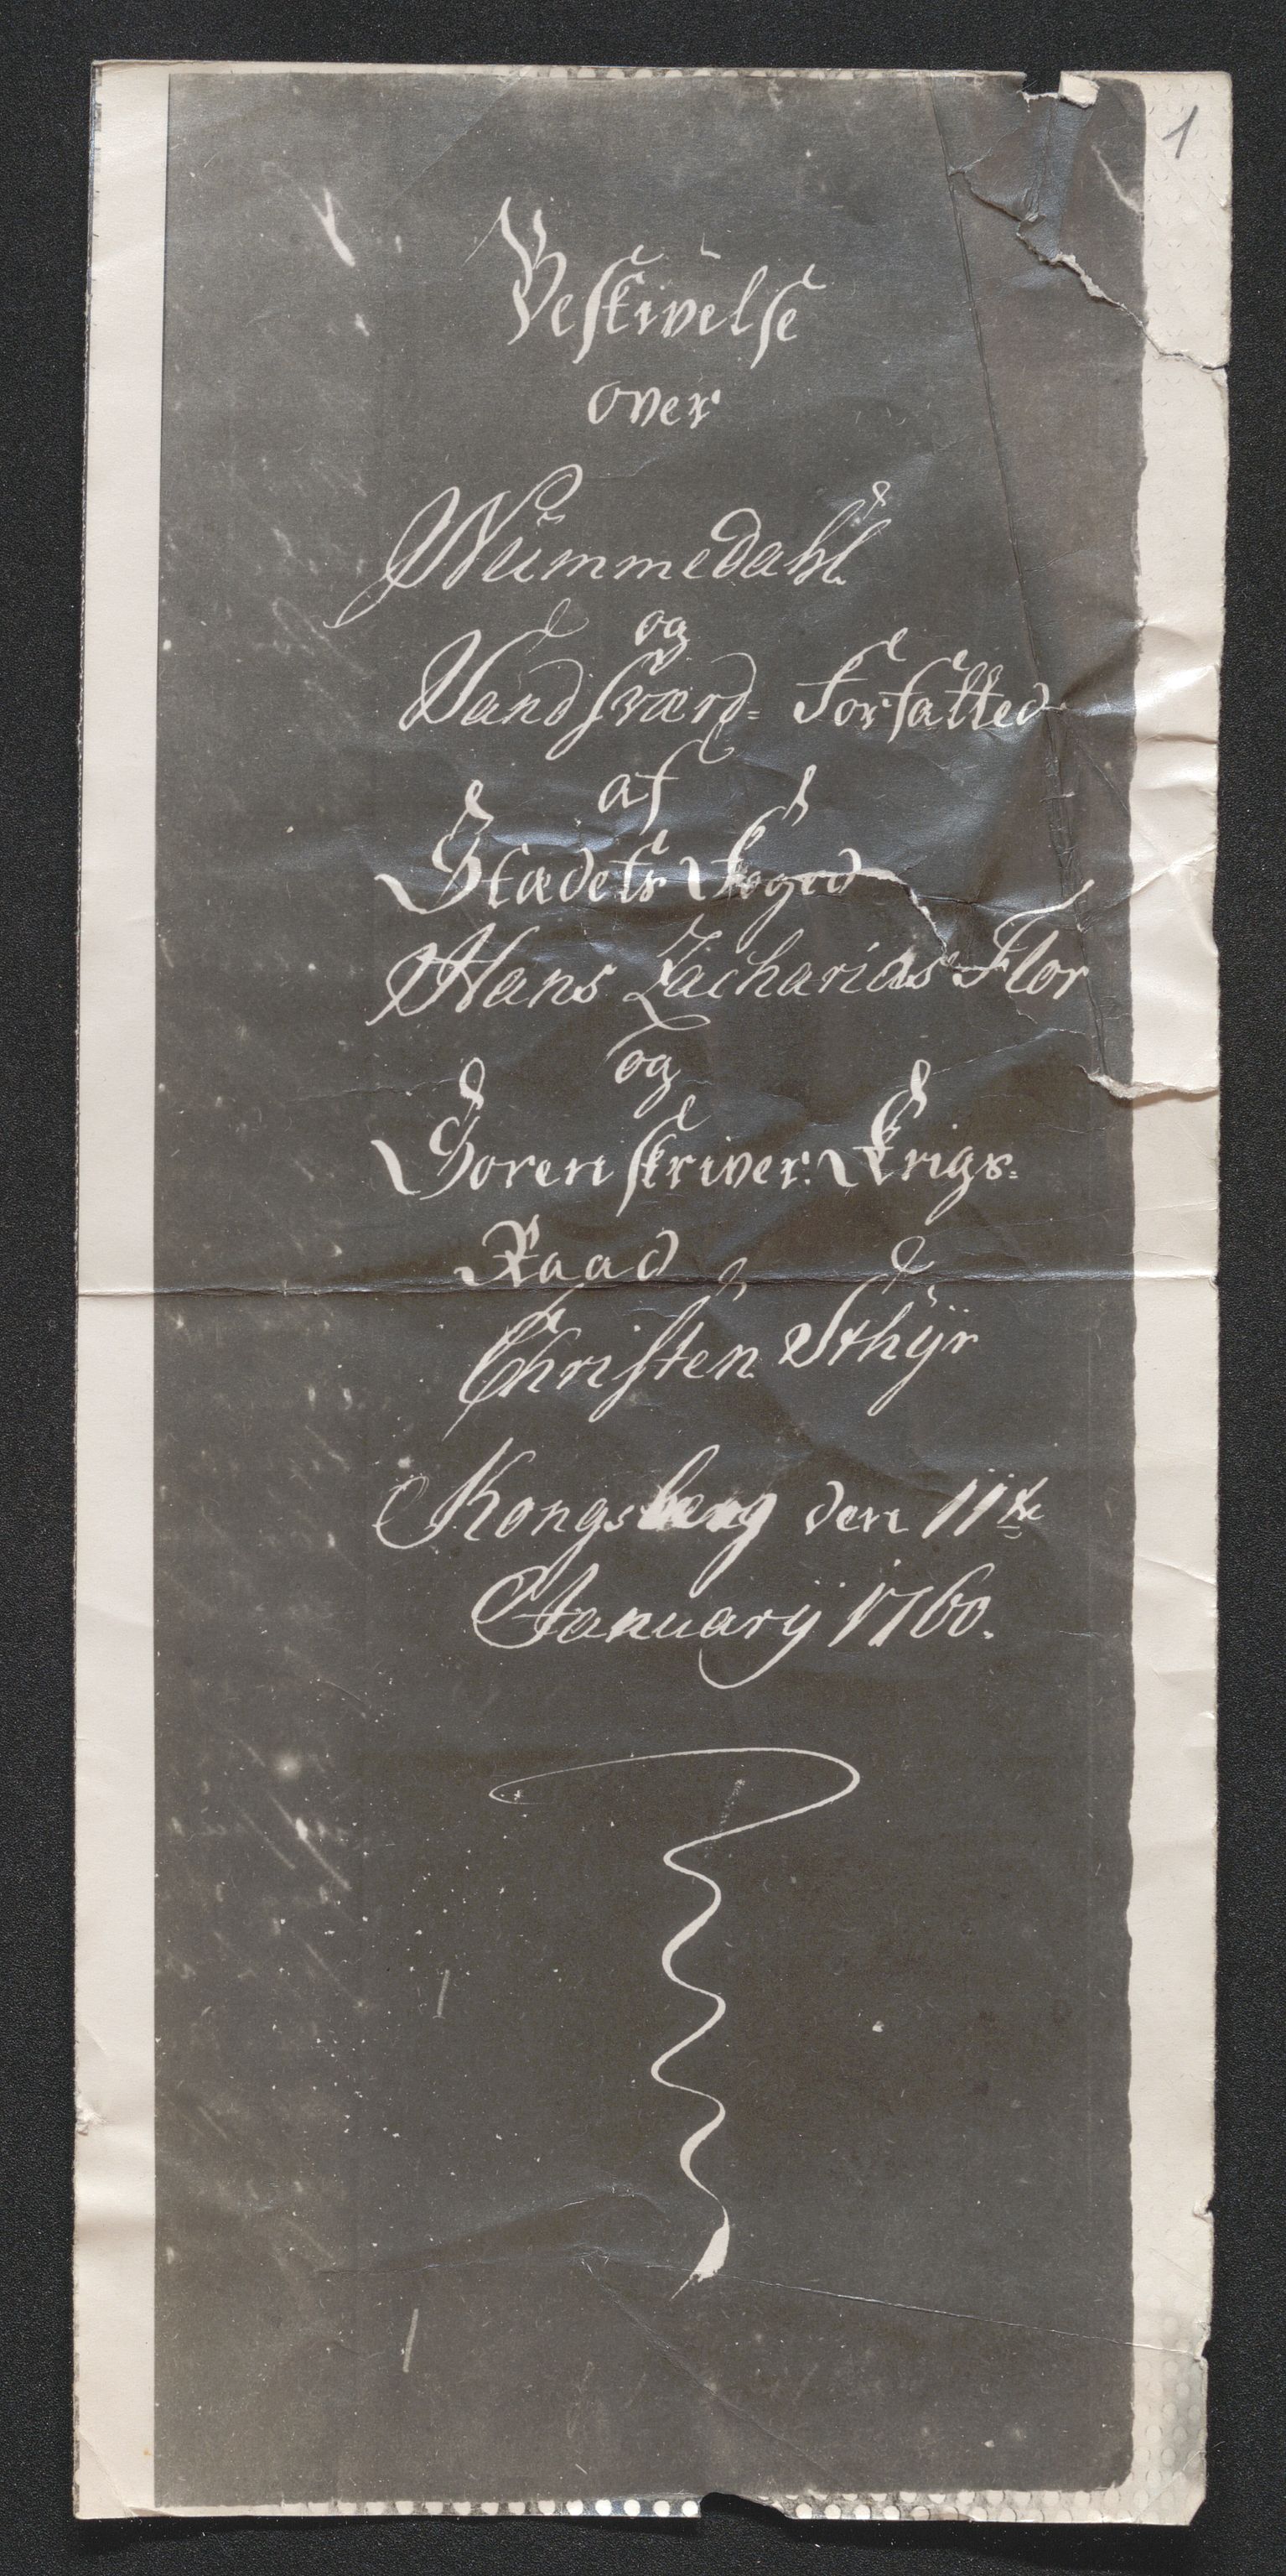 1
Beskivelse
over
Nummedahl
og
Sandsværd= Forfatted
af
Stædets Foged
Hans Zacharias Flor
og
Sorenskriver: Krigs=
Raad
Christen Sthÿr
Kongsberg den 11te
Januarÿ 1760.